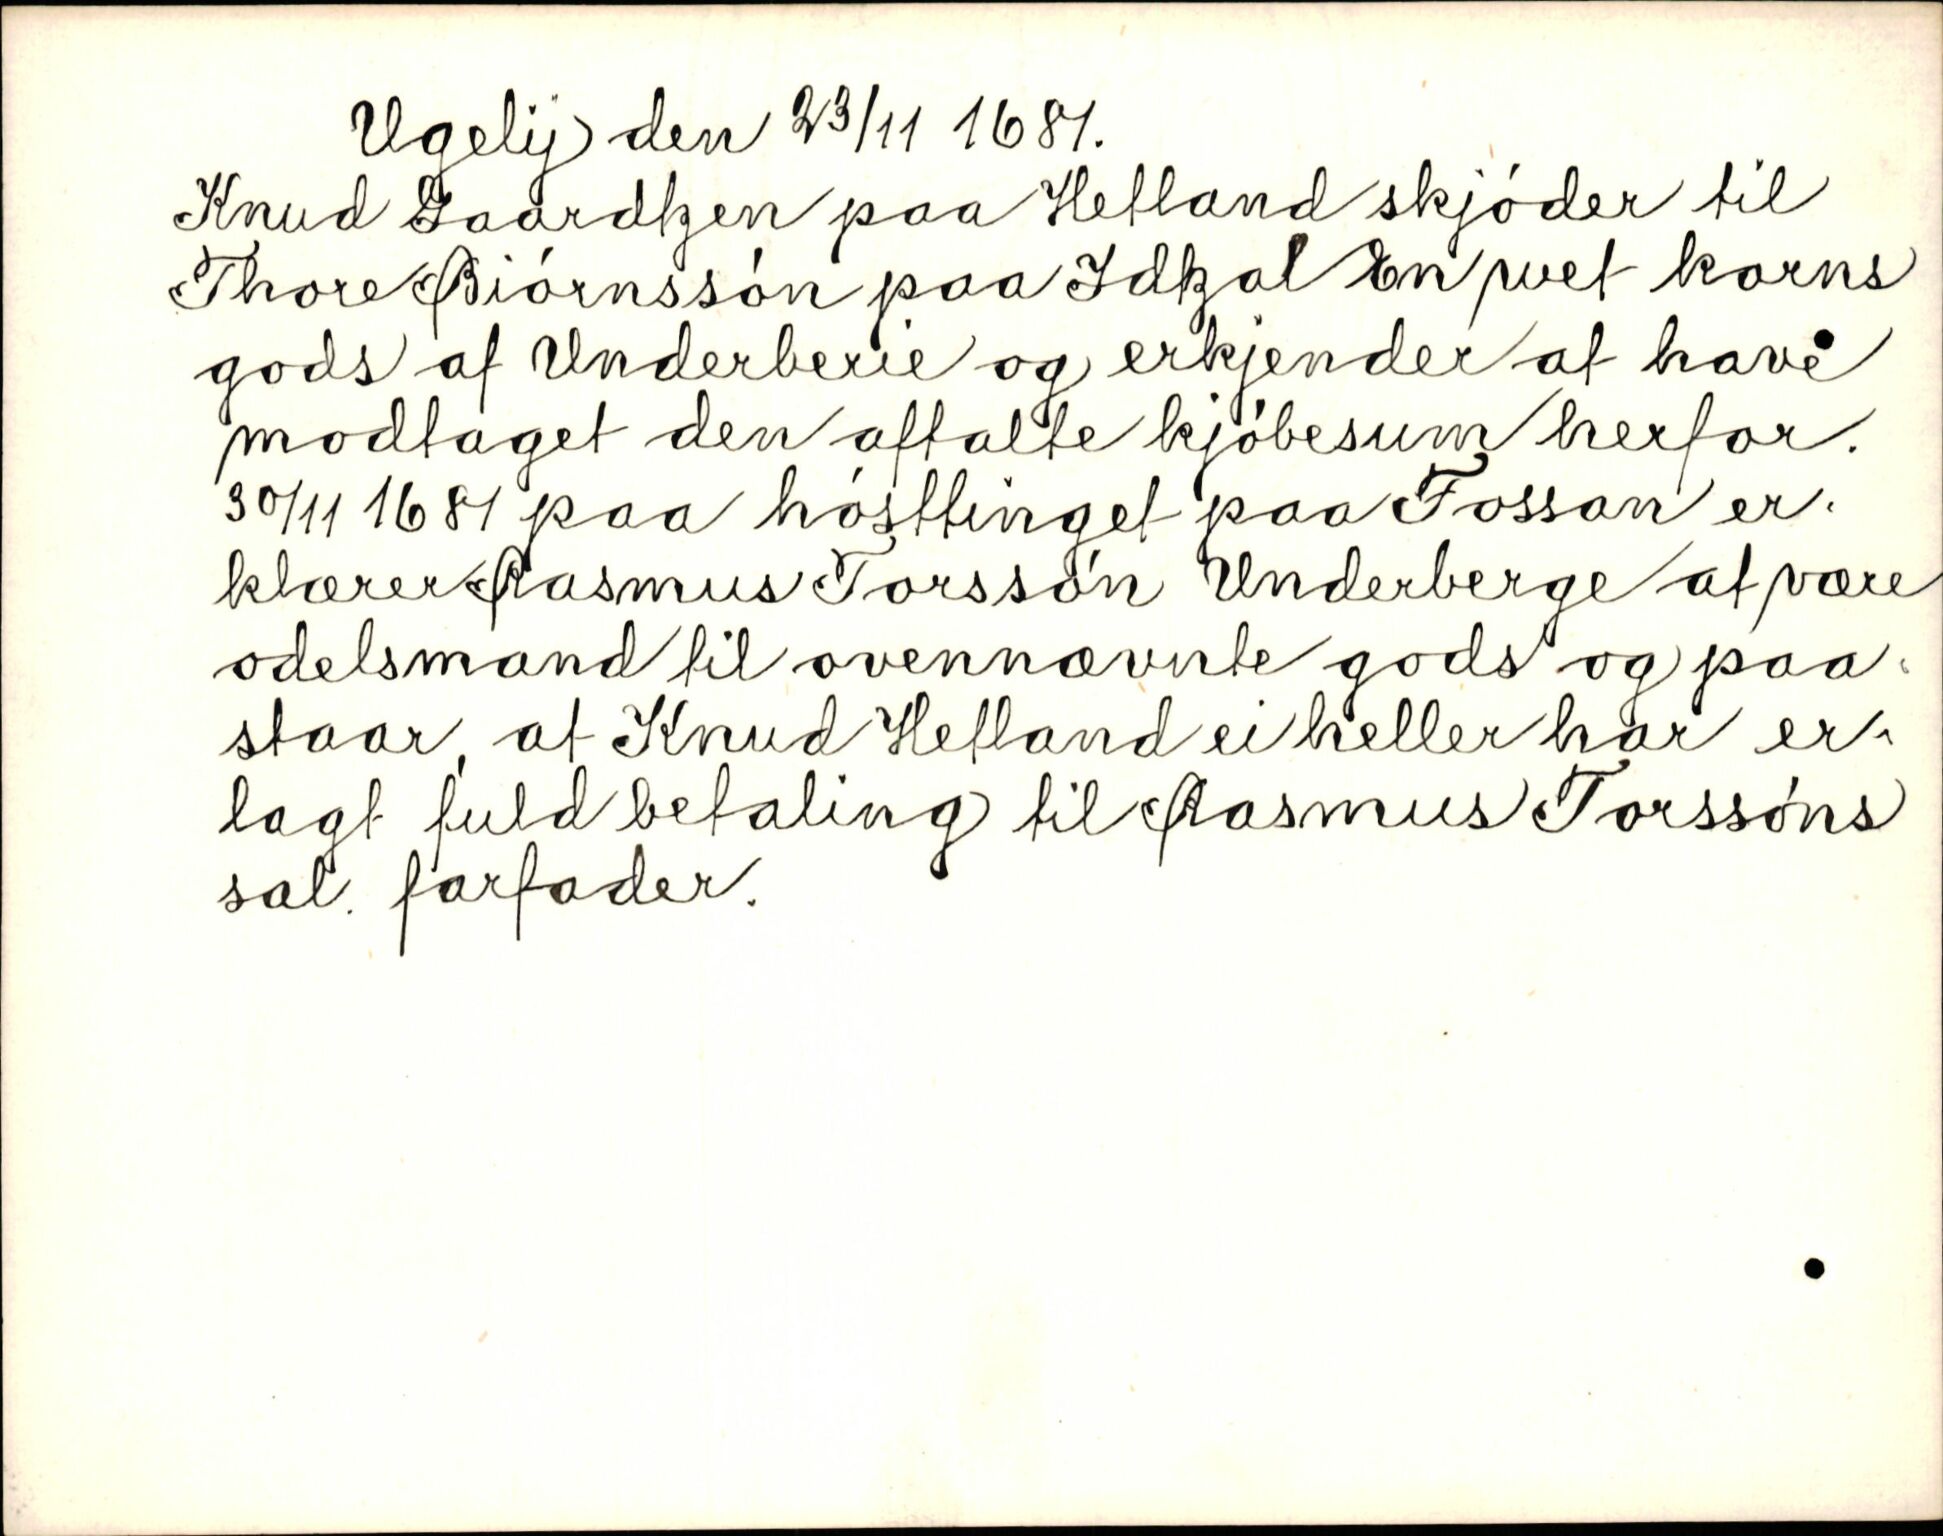 Ugelÿ den 23/11 1681.
Knud Gaardtzen paa Hetland skjóder til
Thore Biórnssón paa Idtzal En wet korns
gods af Underberie og erkjender at have
modtaget den aftalte kjóbesum herfor.
30/11 1681 paa hósttinget paa Fossan er-
klærer Rasmus Torssón Underberge at være
odelsmand til ovennævnte gods og paa-
staar, at Knud Hetland ei heller har er-
lagt fuld betaling til Rasmus Torssóns
sal. farfader.